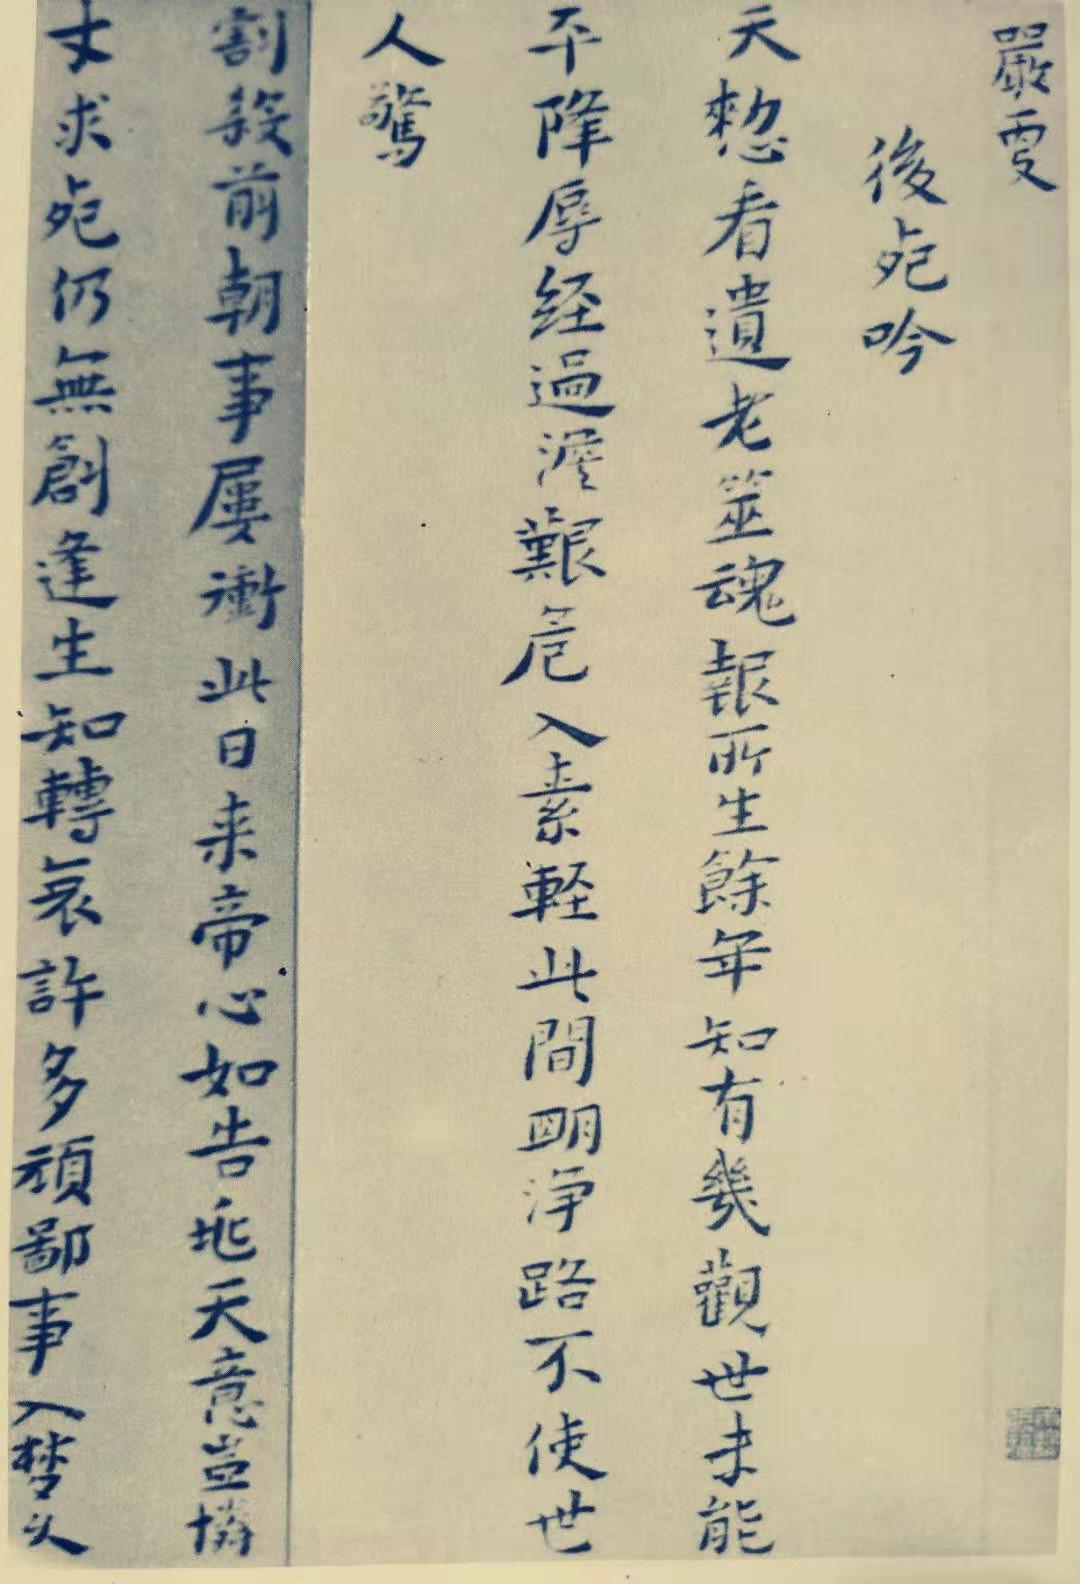 嚴雯
後死吟
天憖看遺老筮魂報所生餘年知有幾觀世未能
平降辱經過澹艱危入素輕此間明淨路不使世
人驚
割發前朝事屢衝此日来帝心如告兆天意豈憐
丈求死仍無創逢生知轉哀許多頑鄙事入梦火